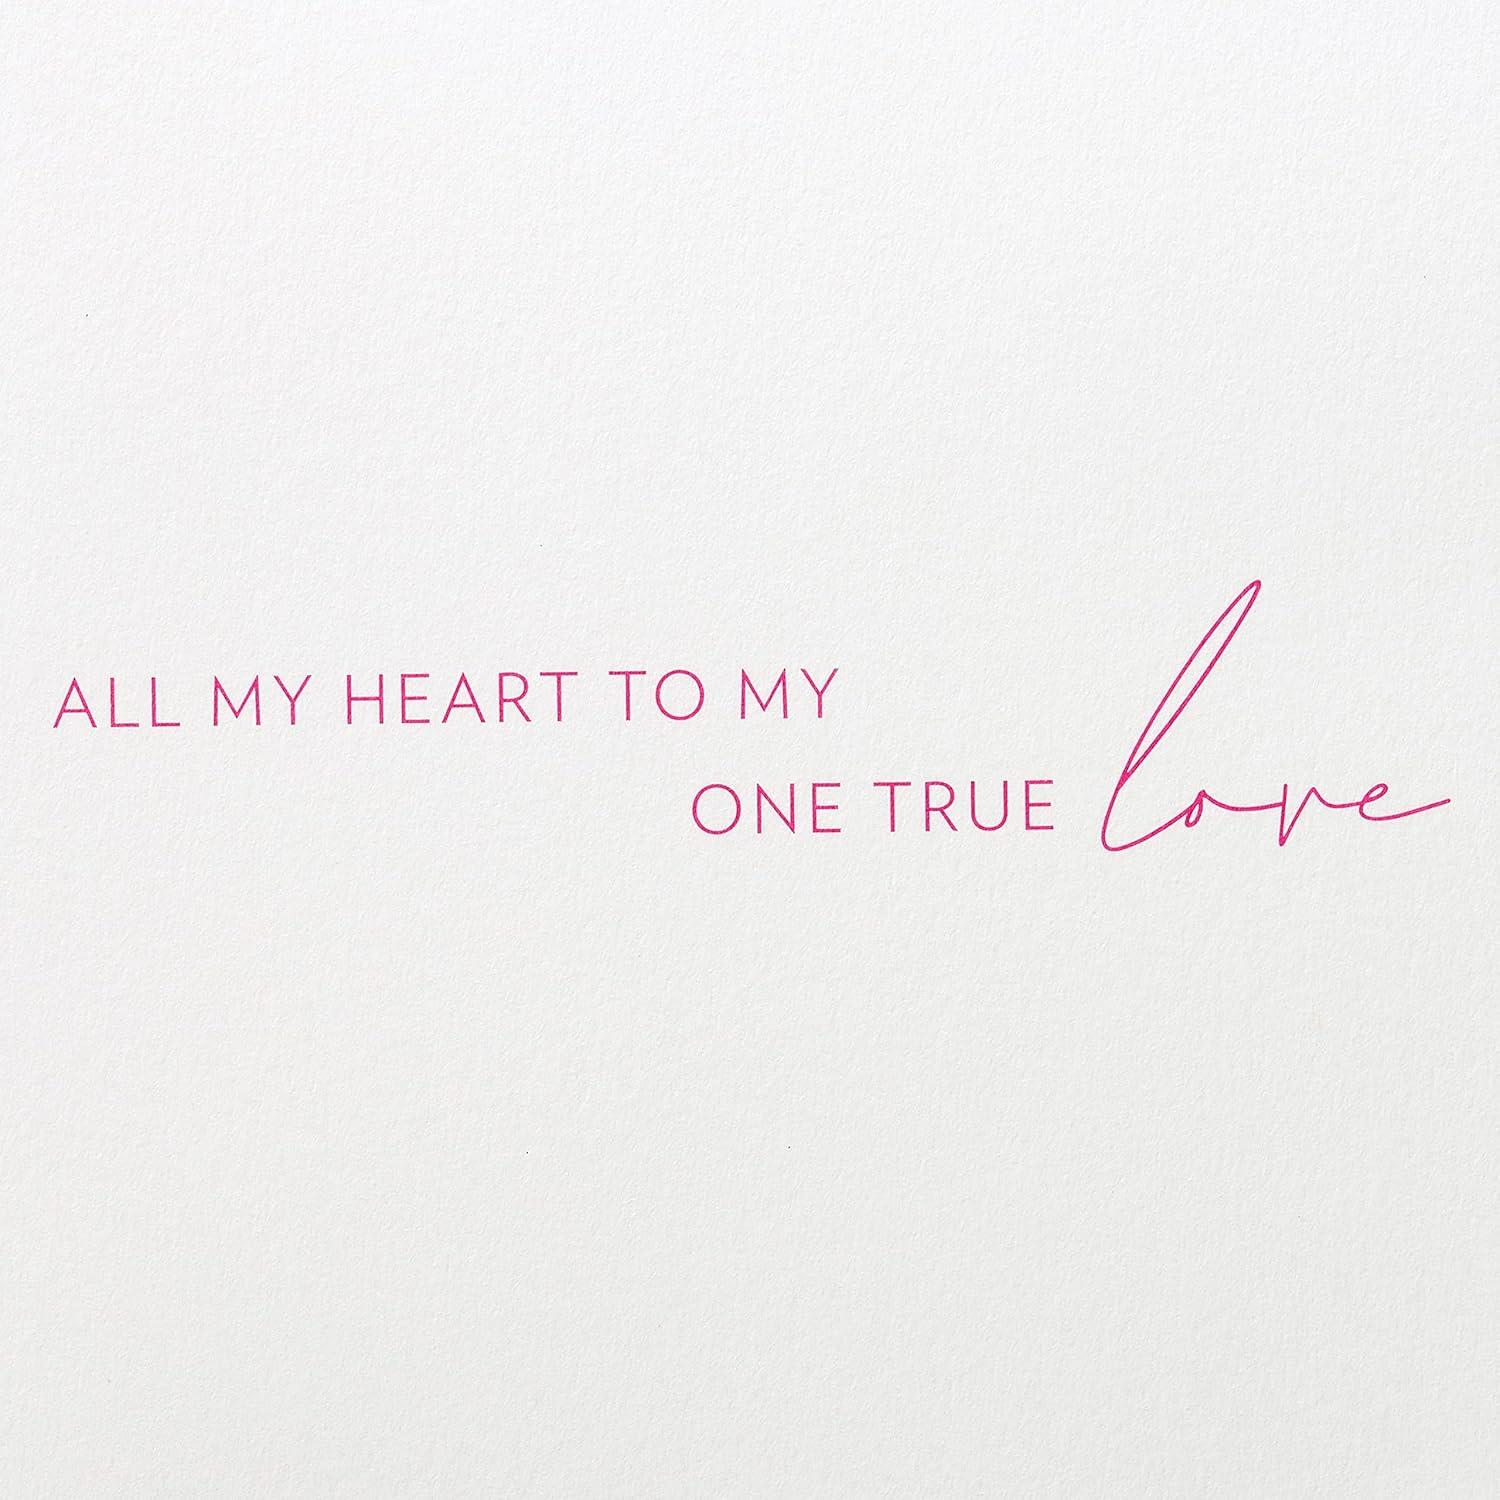 ALL MY HEART TO MY
ONE TRUE love